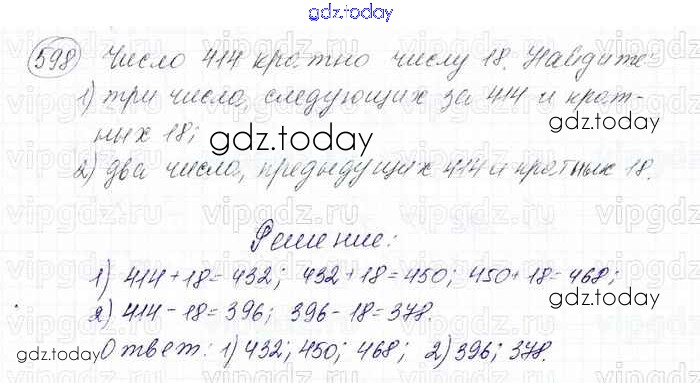 gdz.today
598 Число 414 кратно числу 18. Найдите
1) три числа, следующих за 414 и крат-
ных 18;
gdz.today
2) два числа, предыдущих 414 и кратных 18.
Решение:
1) 414+18=432; 432+18=450; 450+18=468;
2) 414-18=396; 396-18=378.
gdz.today
Ответ: 1) 432; 450; 468; 2) 396; 378.
gdz.today